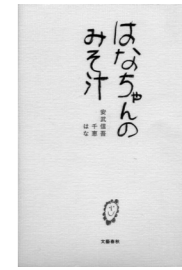 はなちゃんの
みそ汁
安武信吾
千恵
はな
文藝春秋